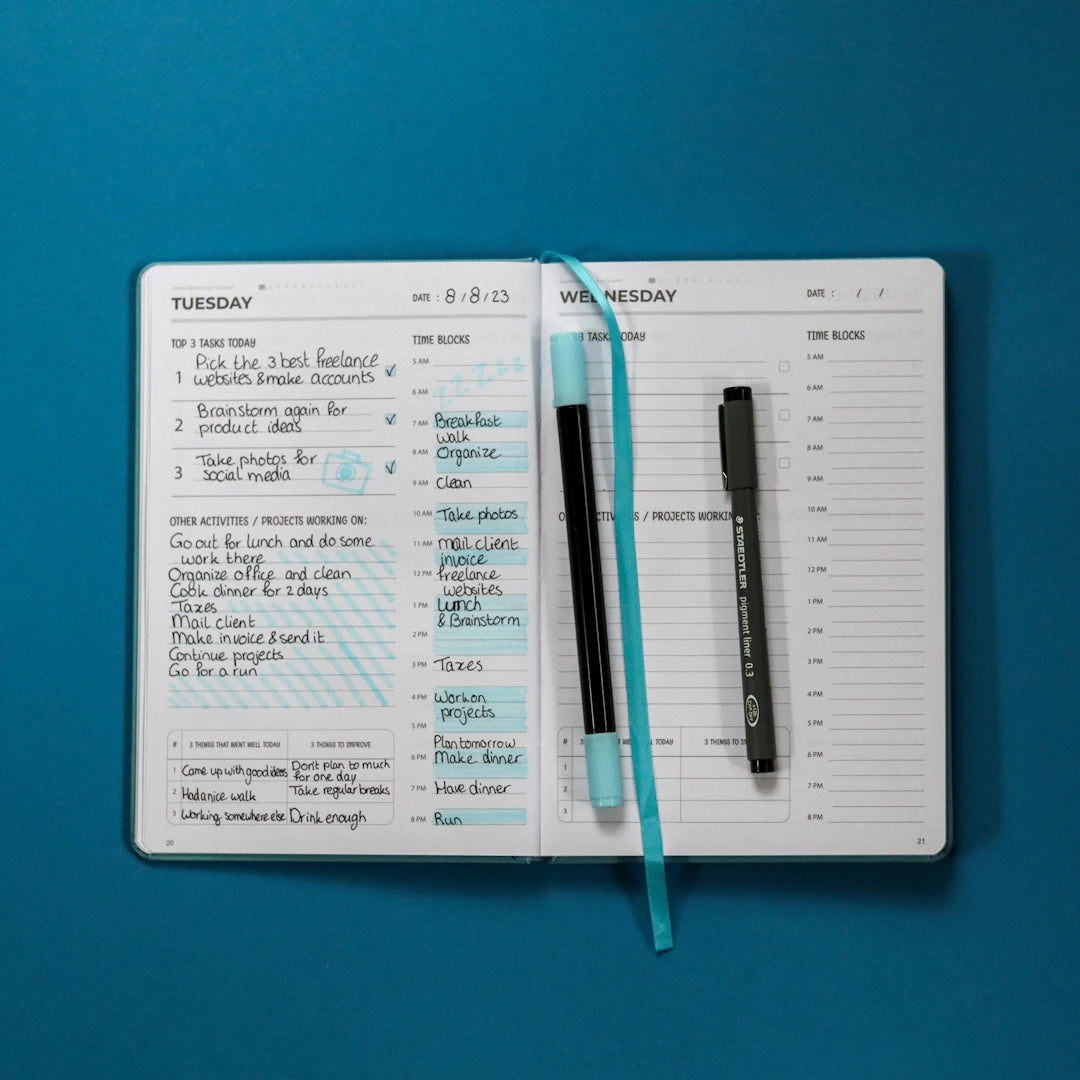 TUESDAY
DATE : 8/8/23
TOP 3 TASKS TODAY
1 Pick the 3 best freelance
websites & make accounts
2 Brainstorm again for
product ideas
3 Take photos for
social media
OTHER ACTIVITIES / PROJECTS WORKING ON:
Go out for lunch and do some
work there
Organize office and clean
Cook dinner for 2 days
Taxes
Mail client
Make invoice & send it
Continue projects
Go for a run
# 3 THINGS THAT WENT WELL TODAY 3 THINGS TO IMPROVE
1 Came up with good ideas Don't plan to much
for one day
2 Had a nice walk Take regular breaks
3 Working somewhere else Drink enough
20
TIME BLOCKS
5 AM ZZZzz
6 AM
7 AM Breakfast
walk
8 AM Organize
9 AM Clean
10 AM Take photos
11 AM mail client
invoice
12 PM freelance
websites
1 PM Lunch
& Brainstorm
2 PM
3 PM Taxes
4 PM Work on
projects
5 PM
Plan tomorrow
6 PM Make dinner
7 PM Have dinner
8 PM Run
WEDNESDAY
DATE : / /
3 TASKS TODAY
ACTIVITIES / PROJECTS WORKING
# 3 THINGS WENT WELL TODAY 3 THINGS TO
1
2
3
TIME BLOCKS
5 AM
6 AM
7 AM
8 AM
9 AM
10 AM
11 AM
12 PM
1 PM
2 PM
3 PM
4 PM
5 PM
6 PM
7 PM
8 PM
21
STAEDTLER pigment liner 0.3